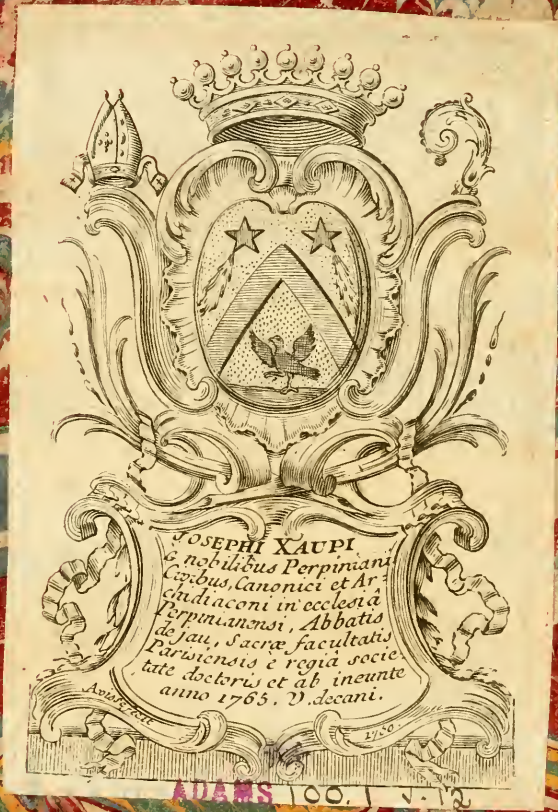 JOSEPHI XAUPI
è nobilibus Perpiniani
Civibus, Canonici et Ar=
chidiaconi in ecclesiâ
Perpinianensi, Abbatis
de Jau, Sacræ facultatis
Parisiensis è regiâ socie-
tate doctoris et ab ineunte
anno 1765. V. decani.
Aviss fecit
1750
ADAMS 100.1 v.12